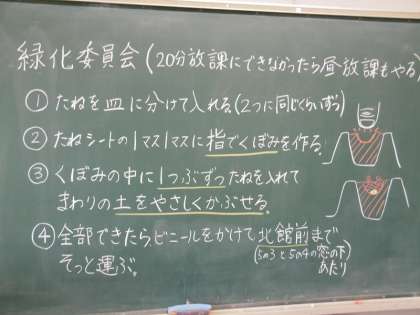 緑化委員会(20分放課にできなかったら昼放課もやる)
① たねを皿に分けて入れる。(2つに同じくらいずつ)
② たねシートの1マス1マスに指でくぼみを作る。
③ くぼみの中に1つぶずつたねを入れて
まわりの土をやさしくかぶせる。
④ 全部できたら、ビニールをかけて北館前まで
そっと運ぶ。
(5の3と5の4の窓の下あたり)